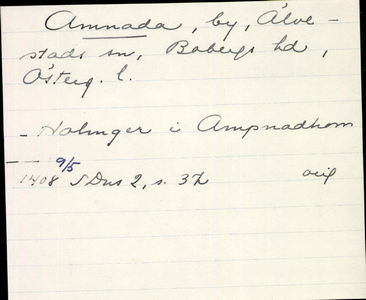 Amnada, by, Älve-
stads sn, Bobergs hd,
Österg. l.
- Holmger i Ampnadhom
- - 9/5
1408 SDns 2, s. 32 orig